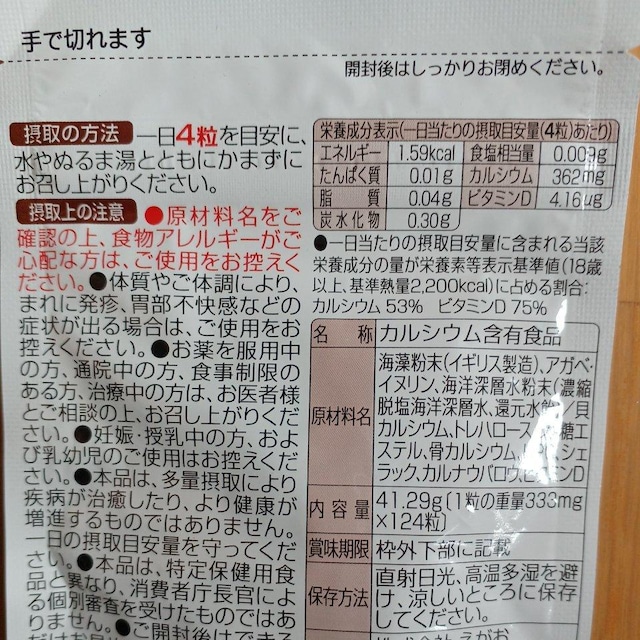 手で切れます
開封後はしっかりお閉めください。
摂取の方法 一日4粒を目安に、
水やぬるま湯とともにかまずに
お召し上がりください。
摂取上の注意 ●原材料名をご
確認の上、食物アレルギーがご
心配な方は、ご使用をお控えく
ださい。●体質やご体調により、
まれに発疹、胃部不快感などの
症状が出る場合は、ご使用をお
控えください。●お薬を服用中
の方、通院中の方、食事制限の
ある方、治療中の方は、お医者様
とご相談の上、お召し上がりくだ
さい。●妊娠・授乳中の方、およ
び乳幼児のご使用はお控えくだ
さい。●本品は、多量摂取により
疾病が治癒したり、より健康が
増進するものではありません。
一日の摂取目安量を守ってくだ
さい。●本品は、特定保健用食
品と異なり、消費者庁長官によ
る個別審査を受けたものではあ
りません。●ご開封後はできる
栄養成分表示(一日当たりの摂取目安量(4粒)あたり)
エネルギー 1.59kcal 食塩相当量 0.009g
たんぱく質 0.01g カルシウム 362mg
脂質 0.04g ビタミンD 4.16μg
炭水化物 0.30g
●一日当たりの摂取目安量に含まれる当該
栄養成分の量が栄養素等表示基準値(18歳
以上、基準熱量2,200kcal)に占める割合:
カルシウム 53% ビタミンD 75%
名称 カルシウム含有食品
原材料名 海藻粉末(イギリス製造)、アガベ・
イヌリン、海洋深層水粉末(濃縮
脱塩海洋深層水、還元水飴)／貝
カルシウム、トレハロース、糖エ
ステル、骨カルシウム、シェ
ラック、カルナウバロウ、ビタミンD
内容量 41.29g[1粒の重量333mg
×124粒]
賞味期限 枠外下部に記載
保存方法 直射日光、高温多湿を避
け、涼しいところに保存
してください。